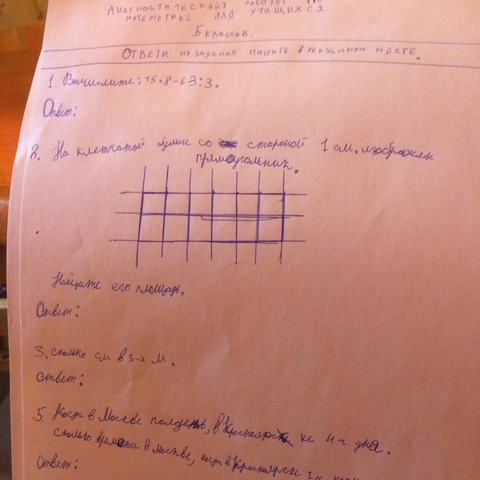 ДИАГНОСТИЧЕСКОЙ РАБОТЫ ПО
МАТЕМАТИКЕ ДЛЯ УЧАЩИХСЯ
5 КЛАССОВ.
ОТВЕТЫ НА ЗАДАНИЯ ПИШИТЕ В УКАЗАННОМ МЕСТЕ.
1. Вычислите: 15+8-63:3.
Ответ:
2. На клетчатой бумаге со стороной 1 см. изображён
прямоугольник.
Найдите его площадь.
Ответ:
3. сколько см в м.
ответ:
5. Когда в Москве полдень, в Красноярске 4 ч. дня.
Сколько времени в Москве, когда в Красноярске
Ответ: